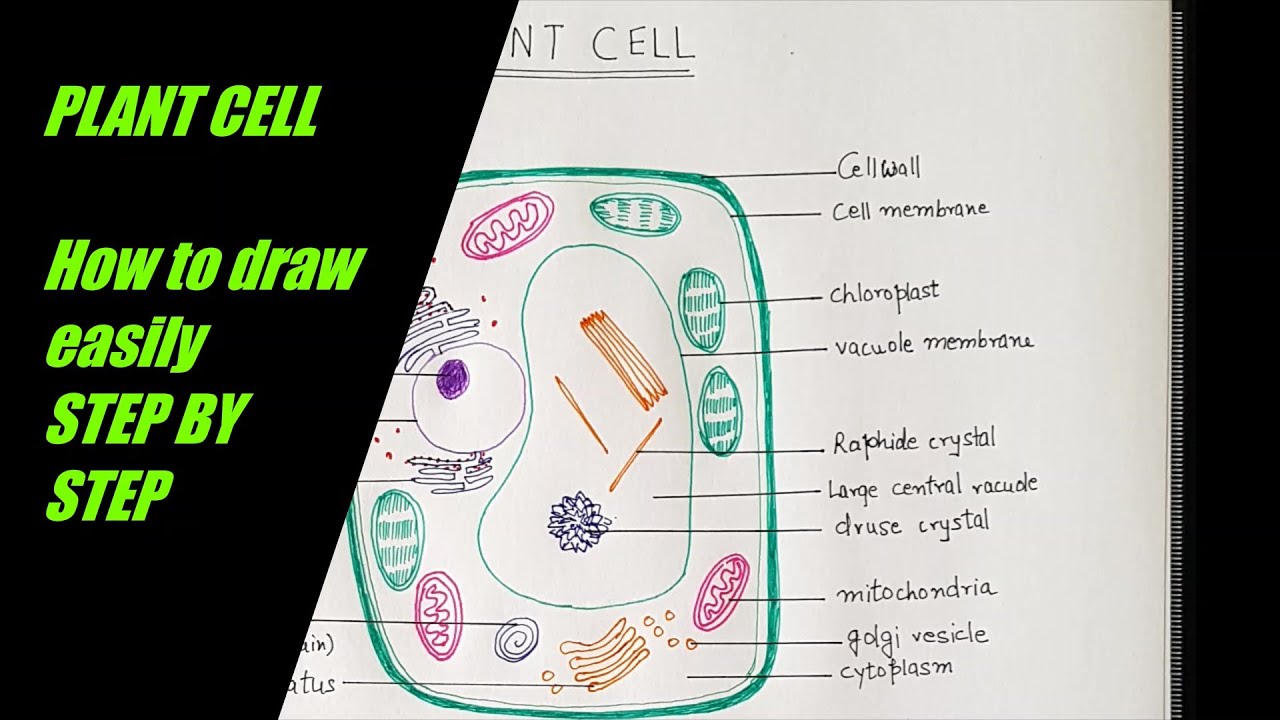 PLANT CELL
How to draw
easily
STEP BY
STEP
NT CELL
Cell wall
Cell membrane
chloroplast
vacuole membrane
Raphide crystal
Large central vacuole
druse crystal
mitochondria
golgi vesicle
cytoplasm
ain)
atus